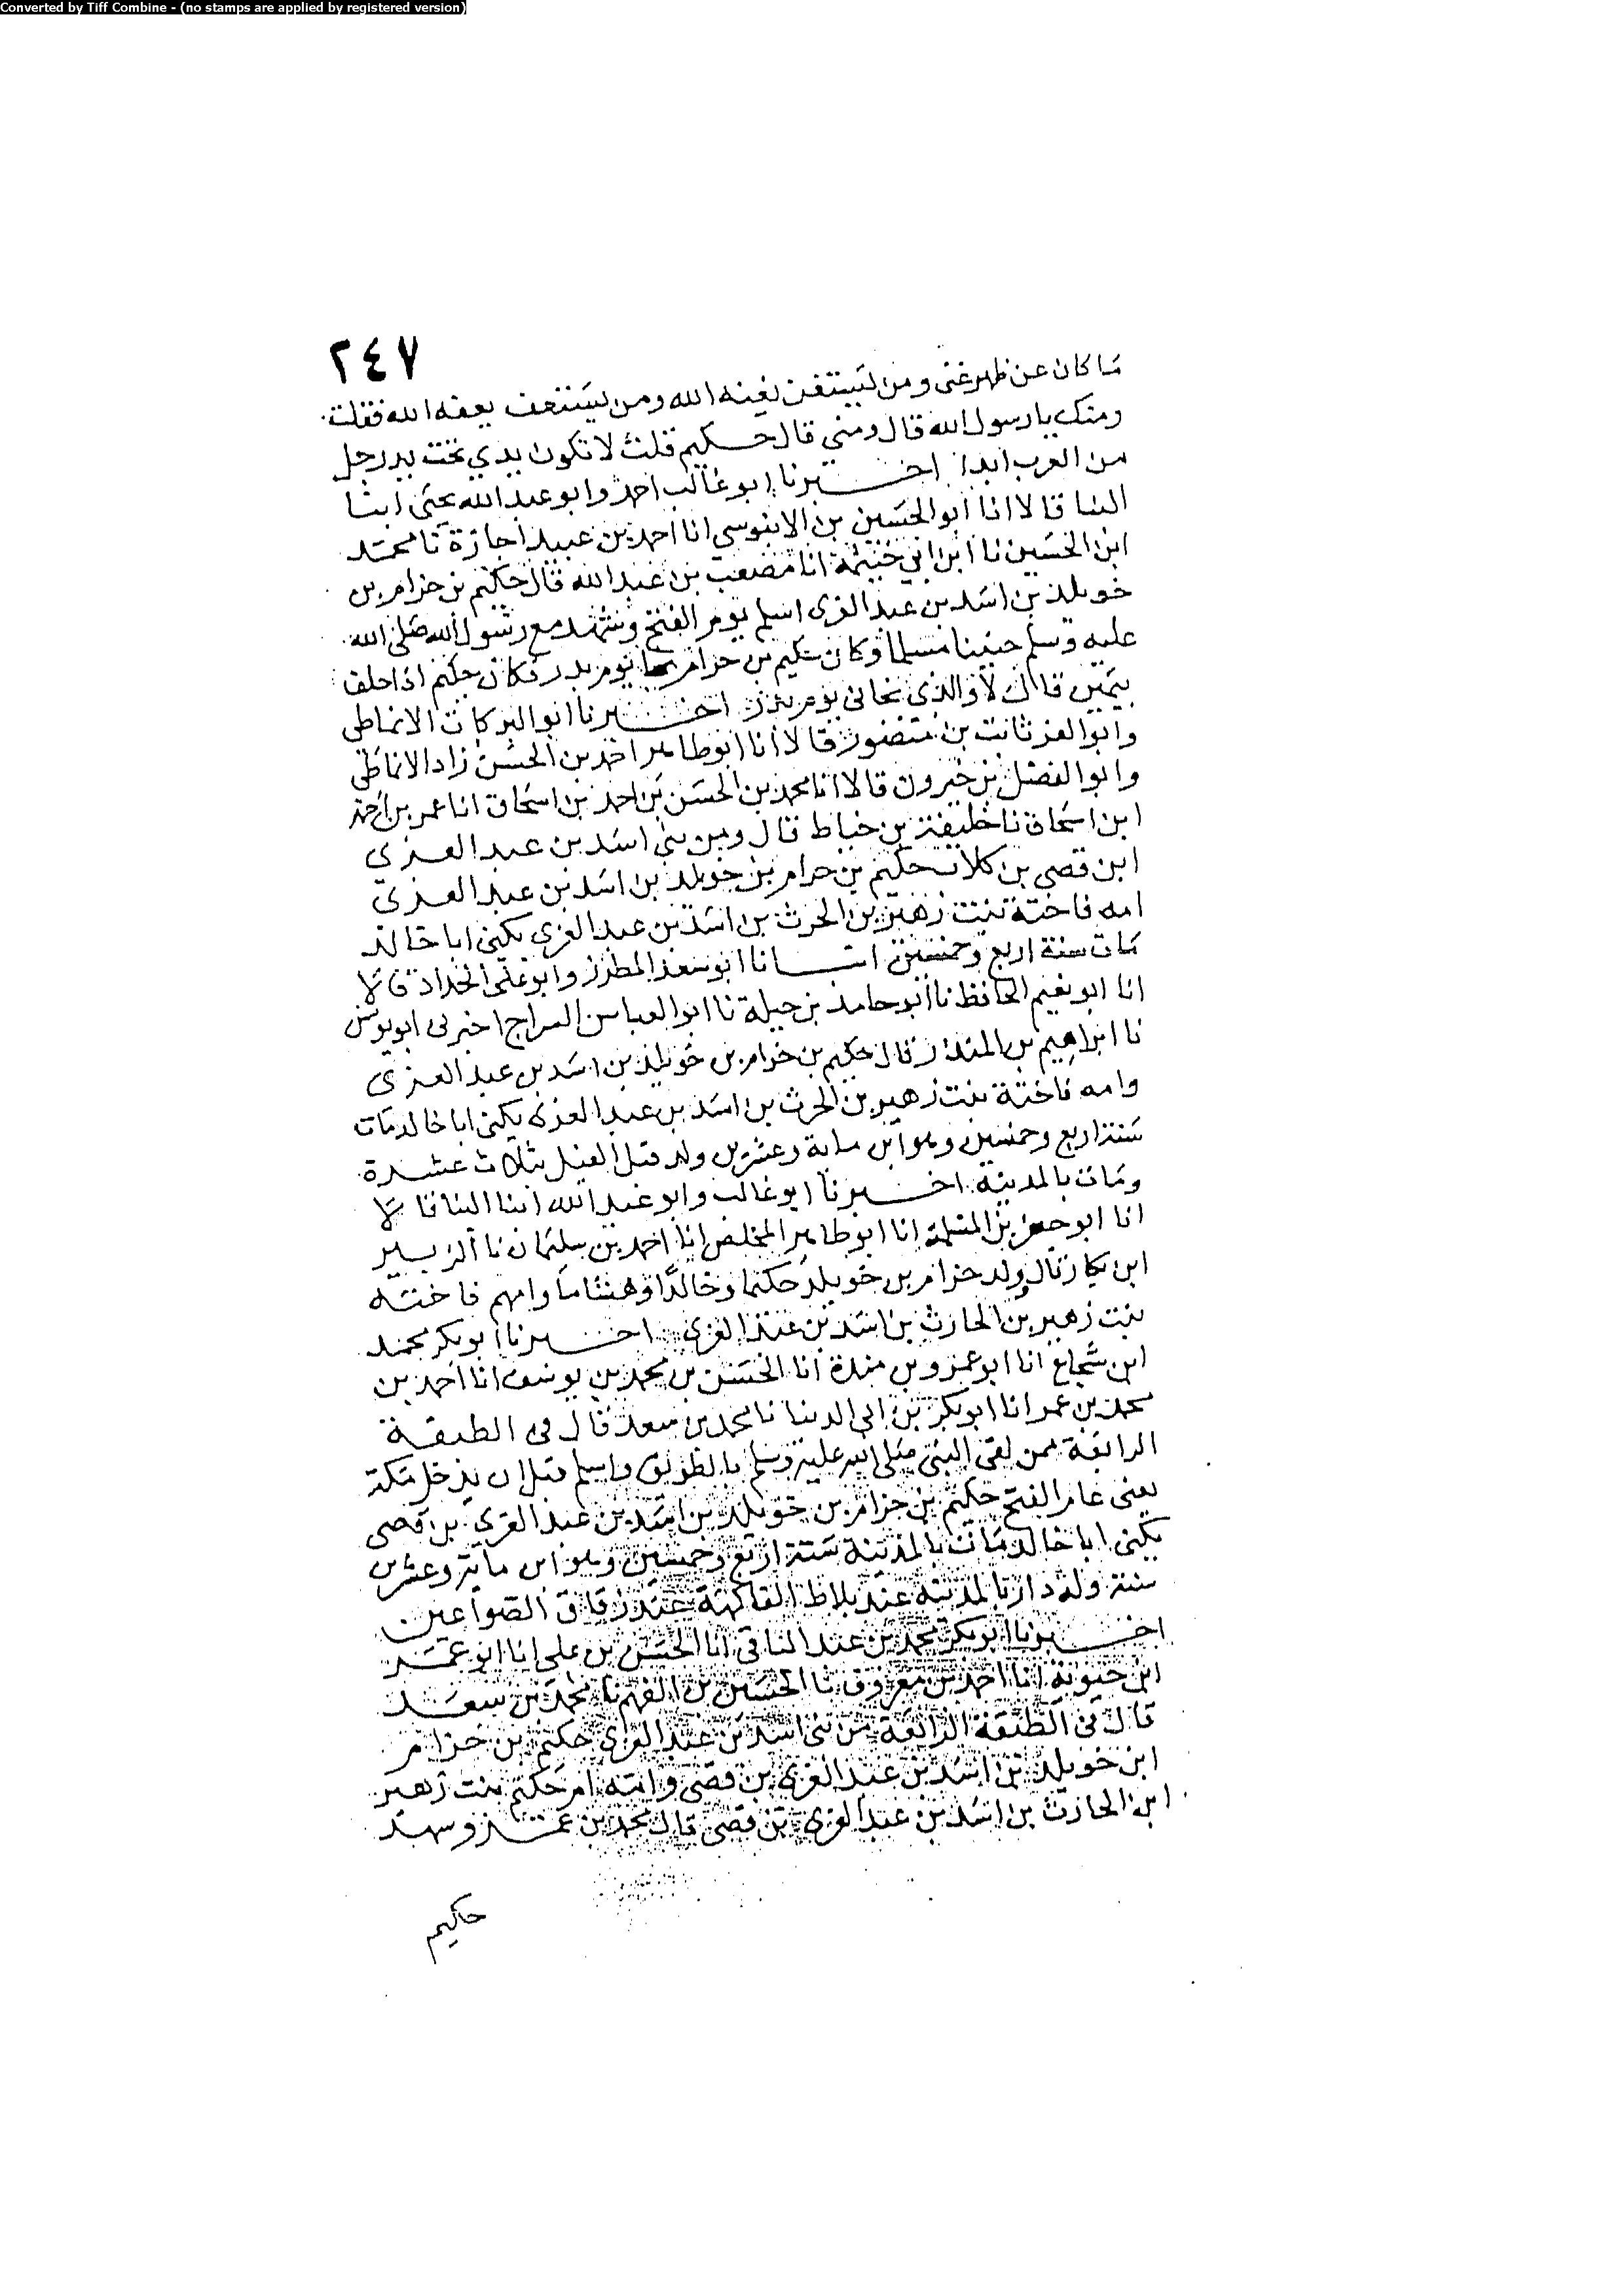 Converted by Tiff Combine - (no stamps are applied by registered version)
٢٤٧
ما كان عن ظهر غنى ومن يستغن يغنه الله ومن يستعف يعفه الله فقلت
ومنك يا رسول الله قال ومني قال حكيم قلت لا تكون يدي تحت يد رجل
من العرب ابدا اخبرنا ابو غالب احمد وابو عبد الله يحيى ابنا
البنا قالا انا ابو الحسين بن الابنوسي انا احمد بن عبيد اجازة نا محمد
ابن الحسين نا ابن ابي خيثمة انا مصعب بن عبد الله قال حكيم بن حزام بن
خويلد بن اسد بن عبد العزى اسلم يوم الفتح وشهد مع رسول الله صلى الله
عليه وسلم حنينا مسلما وكان حكيم بن حزام نجا يوم بدر فكان حكيم اذا حلف
بيمين قال لا والذي نجاني يوم بدر اخبرنا ابو البركات الانماطي
وابو العز ثابت بن منصور قالا انا ابو طاهر احمد بن الحسن زاد الانماطي
وابو الفضل بن خيرون قالا انا محمد بن الحسن بن احمد بن اسحاق انا عمر بن احمد
ابن اسحاق نا خليفة بن خياط قال ومن بني اسد بن عبد العزى
ابن قصي بن كلاب حكيم بن حزام بن خويلد بن اسد بن عبد العزى
امه فاختة بنت زهير بن الحرث بن اسد بن عبد العزى يكنى ابا خالد
مات سنة اربع وخمسين انبانا ابو سعد المطرز وابو علي الحداد قالا
انا ابو نعيم الحافظ نا ابو حامد بن جبلة نا ابو العباس السراج اخبرني ابو يونس
نا ابراهيم بن المنذر قال حكيم بن حزام بن خويلد بن اسد بن عبد العزى
وامه فاختة بنت زهير بن الحرث بن اسد بن عبد العزى يكنى ابا خالد مات
سنة اربع وخمسين وهو ابن ماية وعشرين ولد قبل الفيل بثلاث عشرة
ومات بالمدينة اخبرنا ابو غالب وابو عبد الله ابنا البنا قالا
انا ابو جعفر بن المسلمة انا ابو طاهر المخلص انا احمد بن سليمان نا الزبير
ابن بكار قال ولد حزام بن خويلد حكيما وخالدا وهشاما وامهم فاخته
بنت زهير بن الحارث بن اسد بن عبد العزى اخبرنا ابو بكر محمد
ابن شجاع انا ابو عمرو بن مندة انا الحسن بن محمد بن يوسف انا احمد بن
محمد بن عمر انا ابو بكر بن ابي الدنيا نا محمد بن سعد قال في الطبقة
الرابعة ممن لقي النبي صلى الله عليه وسلم بالطريق واسلم قبل ان يدخل مكة
يعني عام الفتح حكيم بن حزام بن خويلد بن اسد بن عبد العزى بن قصي
يكنى ابا خالد مات بالمدينة سنة اربع وخمسين وهو ابن ماية وعشرين
سنة وله دار بالمدينة عند بلاط الفاكهة عند زقاق الصواغين
اخبرنا ابو بكر محمد بن عبد الباقي انا الحسن بن علي انا ابو عمر
ابن حيوية انا احمد بن معروف نا الحسين بن الفهم نا محمد بن سعد
قال في الطبقة الرابعة من بني اسد بن عبد العزى حكيم بن حزام
ابن خويلد بن اسد بن عبد العزى بن قصي وامه ام حكيم بنت زهير
ابن الحارث بن اسد بن عبد العزى بن قصي قال محمد بن عمر وشهد
حكيم